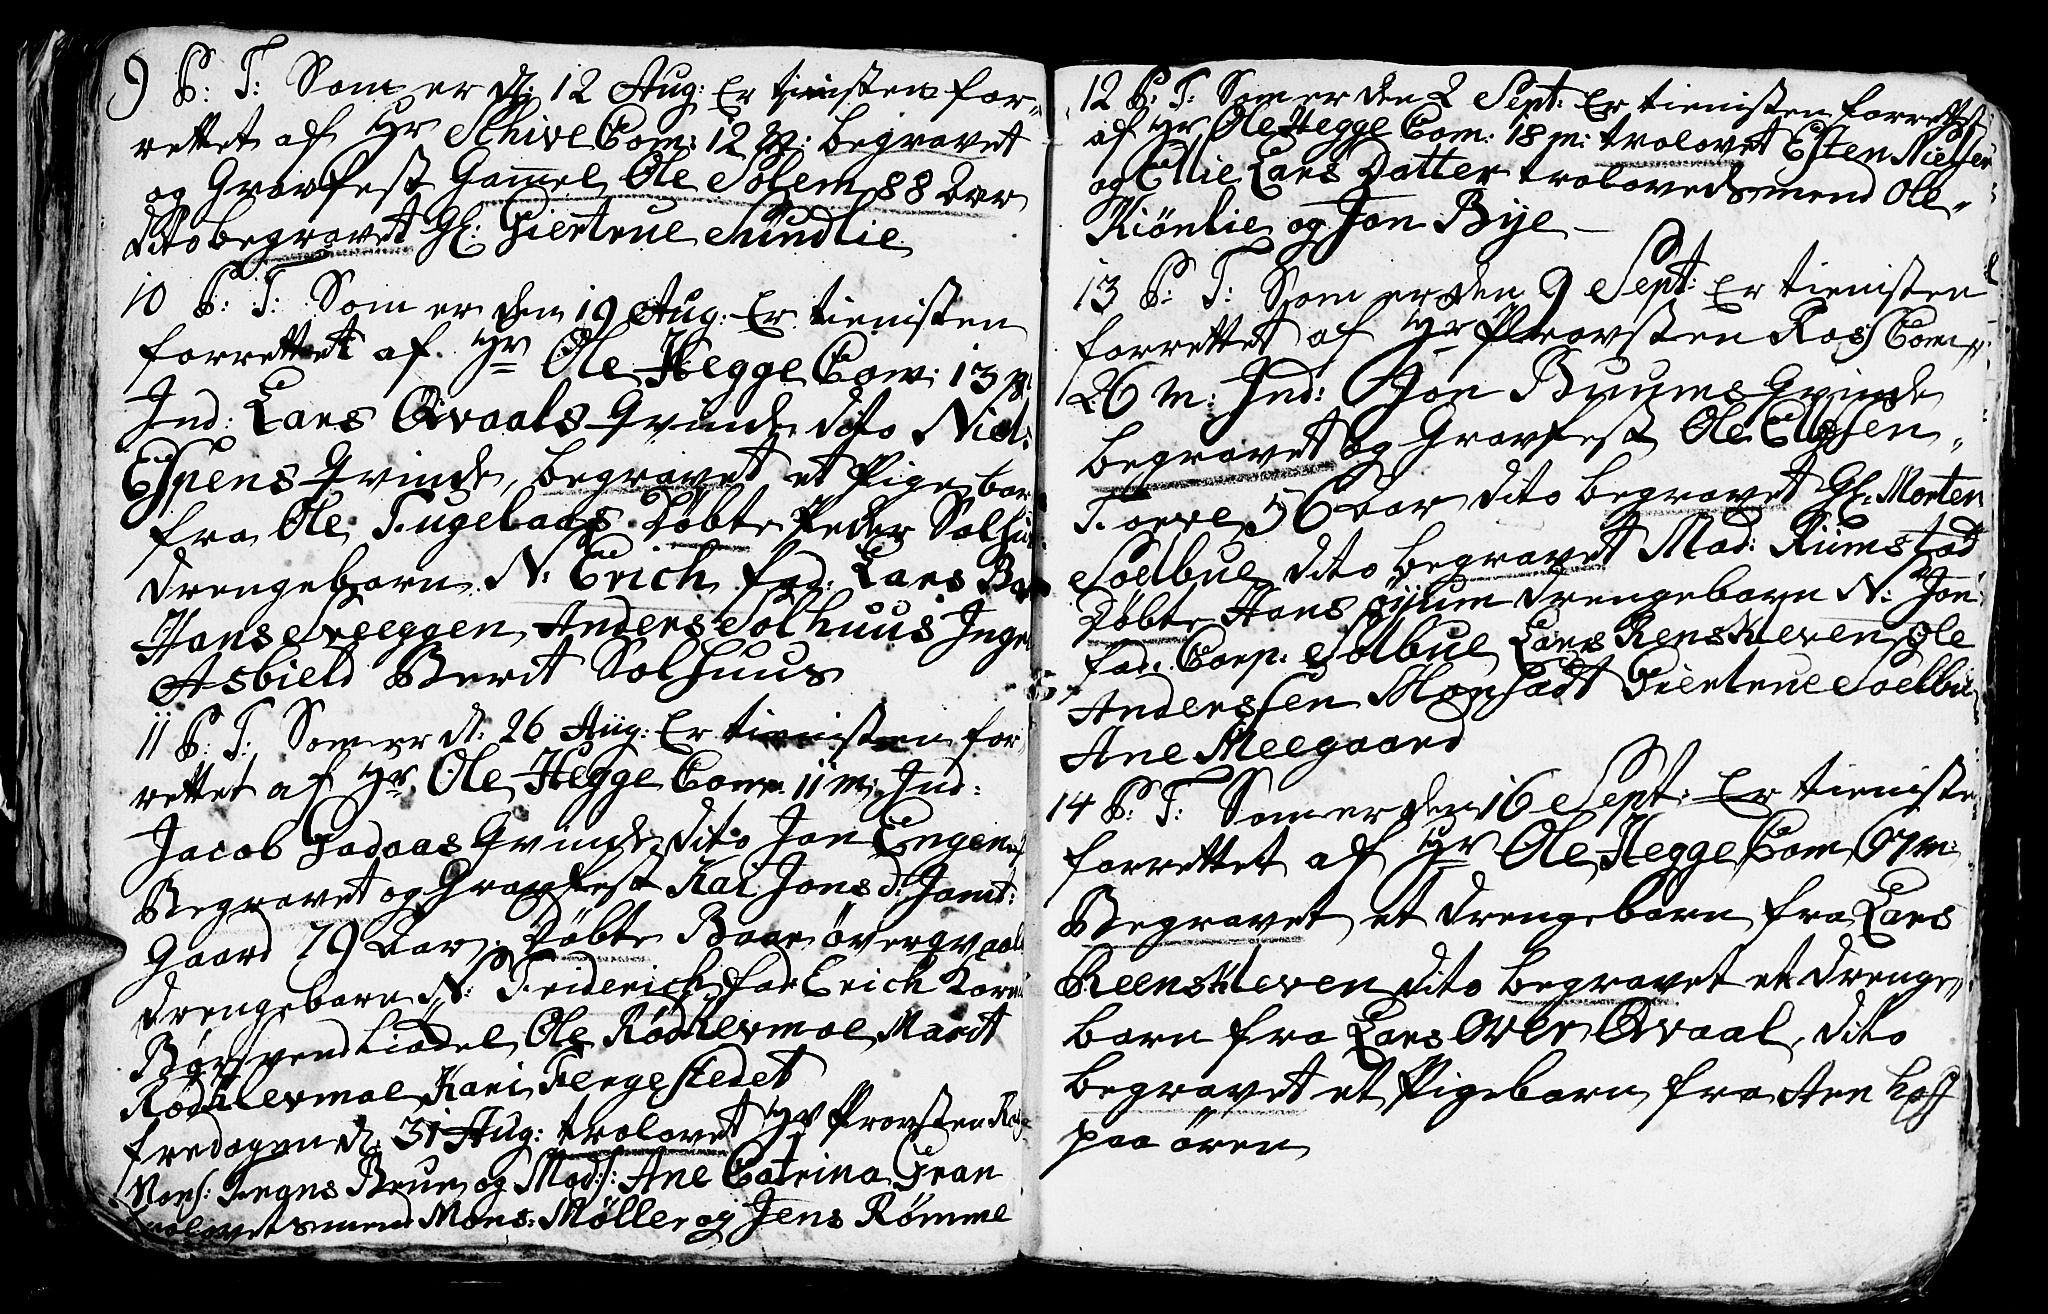 9 P: T: Som er d: 12 Aug: Er tienisten for-
rettet af Hr Schive Com: 12 m: begravet
og Gravfest Gamel Ole Solem 88 Aar
dito begravet Gl: Giertrue Sundlie
10 P: T: Som er den 19 Aug: Er tienisten
forrettet af Hr Ole Hegge Com: 13 m:
Ind: Lars Qvaals Qvinde dito Niels
Espens Qvinde, begravet et Pige barn
fra Ole Fugelaas Døbt Peder Solhuus
drengebarn N: Erich fad: Lars
Hans Sveeggen Anders Solhuus Inge
Asbield Berit Solhuus
11 P: T: Som er d: 26 Aug: Er tienisten for
rettet af Hr Ole Hegge Com: 11 m: Ind:
Jacob Gadaas Qvinde dito Jon Engen
Begravet og Gravfest Kari Jons d: Jamt:
Gaard 79 Aar, Døbt Baar överqvaal
drengebarn N: Friderich fad: Erich
Ole Rødklevmoe Marit
Rødklevmoe Kari Fergestedet
fredagen d: 31 Aug: trolovet Hr Provsten
Mons: Brun og Mad: Ane Catrina Gran
trolovetsmend Mons: Møller og Jens Rømme
12 P: T: Som er den 2 Sept: Er tienisten forrettet
af Hr Ole Hegge Com: 18 m: trolovet Esten Nielsen
og Ellie Lars Datter trolovedsmend Ole
Kiönlie og Jon Bye
13 P: T: Som er den 9 Sept: Er tienisten
forrettet af Hr Provsten Ros Com
26 m: Ind: Jon Buums Qvinde
begravet og Gravfest Ole Ellefsen
Torve 56 aar dito begravet Gl: Morten
Soelbue dito begravet Mad: Rumstad
Døbt Hans öyum drengebarn N: Jon
fad: Corp: Solbue Lars Renskleven Ole
Anderssen Monstadt Giertrue Soelbue
Ane Meegaard
14 P: T: Som er den 16 Sept: Er tieniste
forrettet af Hr Ole Hegge Com 67 m:
Begravet et drengebarn fra Lars
Reenskleven dito begravet et drenge
barn fra Lars Over Qvaal, dito
begravet et Pigebarn fra Hoff
paa ören